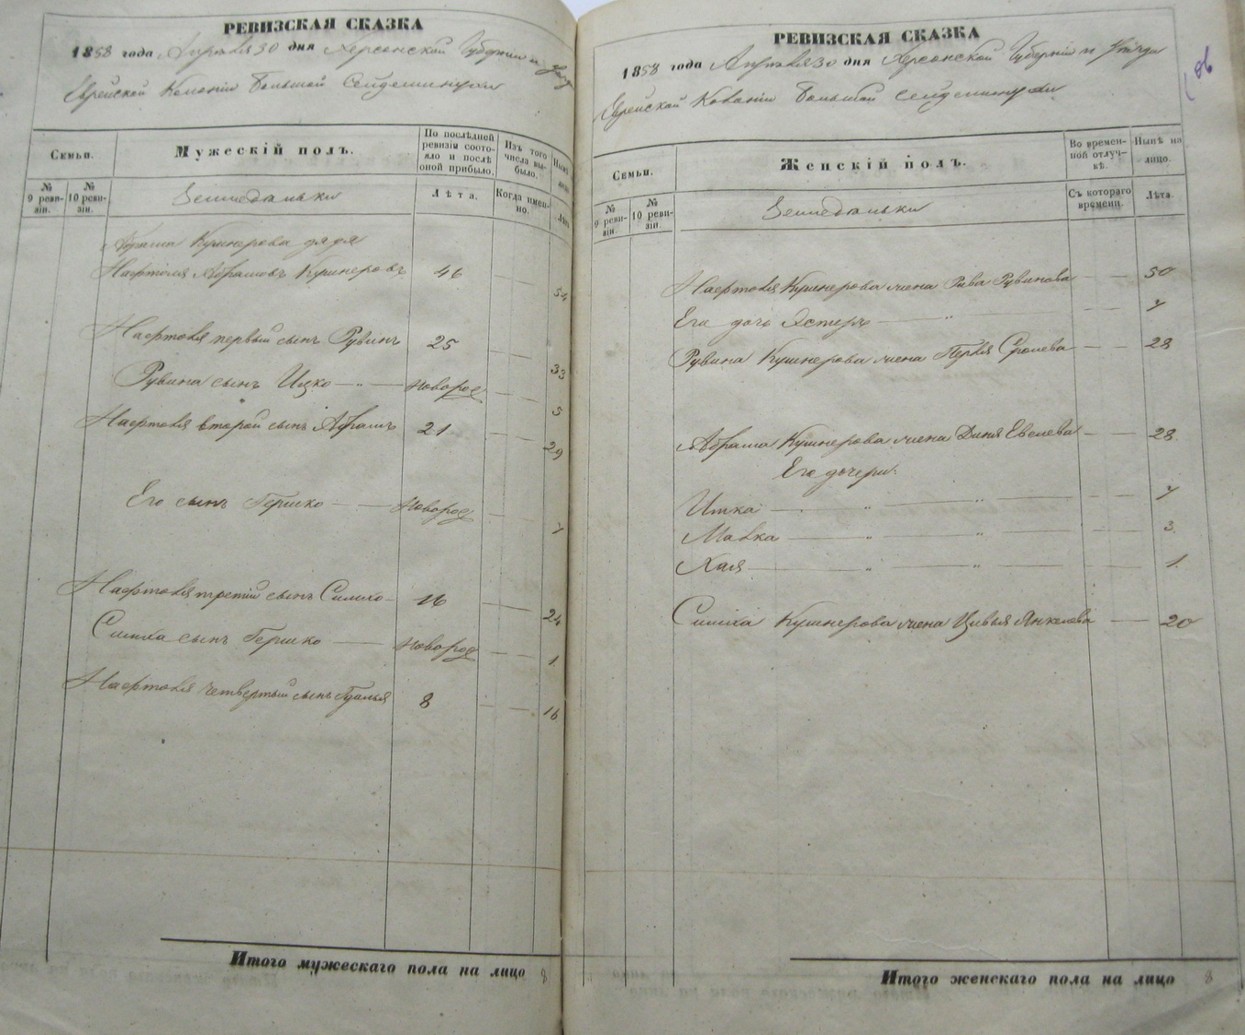 РЕВИЗСКАЯ СКАЗКА
1858 года Апреля 30 дня Херсонской Губернии и уезда
Еврейской Колонии Большой Сейдеминухи
Семьи.
Мужескій полъ.
По послѣдней ревизіи состояло и послѣ оной прибыло.
Изъ того числа выбыло.
№ 9 ревизіи.
№ 10 ревизіи.
Земледельцы
Лѣта.
Когда именно.
Абрама Кушнерова дядя
Нафтоля Абрамовъ Кушнеровъ 46 — — 54
Нафтоля первый сынъ Рувинъ 25 — — 33
Рувина сынъ Ицко — " — новорож — — 5
Нафтоля второй сынъ Абрамъ 21 — — 29
Его сынъ Гершко — новорож — — 7
Нафтоля третій сынъ Симхо 16 — — 24
Симха сынъ Гершко — новорож — — 1
Нафтоля четвертый сынъ 8 — — 16
Итого мужескаго пола на лицо 8
РЕВИЗСКАЯ СКАЗКА
1858 года Апреля 30 дня Херсонской Губернии и уезда
Еврейской Колонии Большой Сейдеминухи
Семьи.
Женскій полъ.
Во временной отлучкѣ.
Нынѣ на лицо.
№ 9 ревизіи.
№ 10 ревизіи.
Земледельцы
Съ котораго времени.
Лѣта.
Нафтоля Кушнерова жена Рива Рувинова — — 50
Его дочь Эстеръ — — 7
Рувина Кушнерова жена Перля Сролева — — 28
Абрама Кушнерова жена Диня Евелева — — 28
Его дочери
Итка — " — " — — 7
Малка — " — " — — 3
Хая — " — " — — 1
Симха Кушнерова жена Цивья Янкелева — — 20
Итого женскаго пола на лицо 8